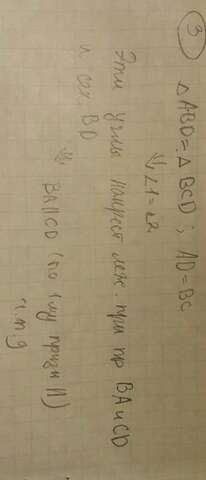 3
△ ABD = △ BCD ; AD = BC
⇓ ∠1 = ∠2
Эти углы накрест леж. при пр BA и CD
и сек. BD
⇓
BA || CD (по 1му призн ||)
ч.т.д